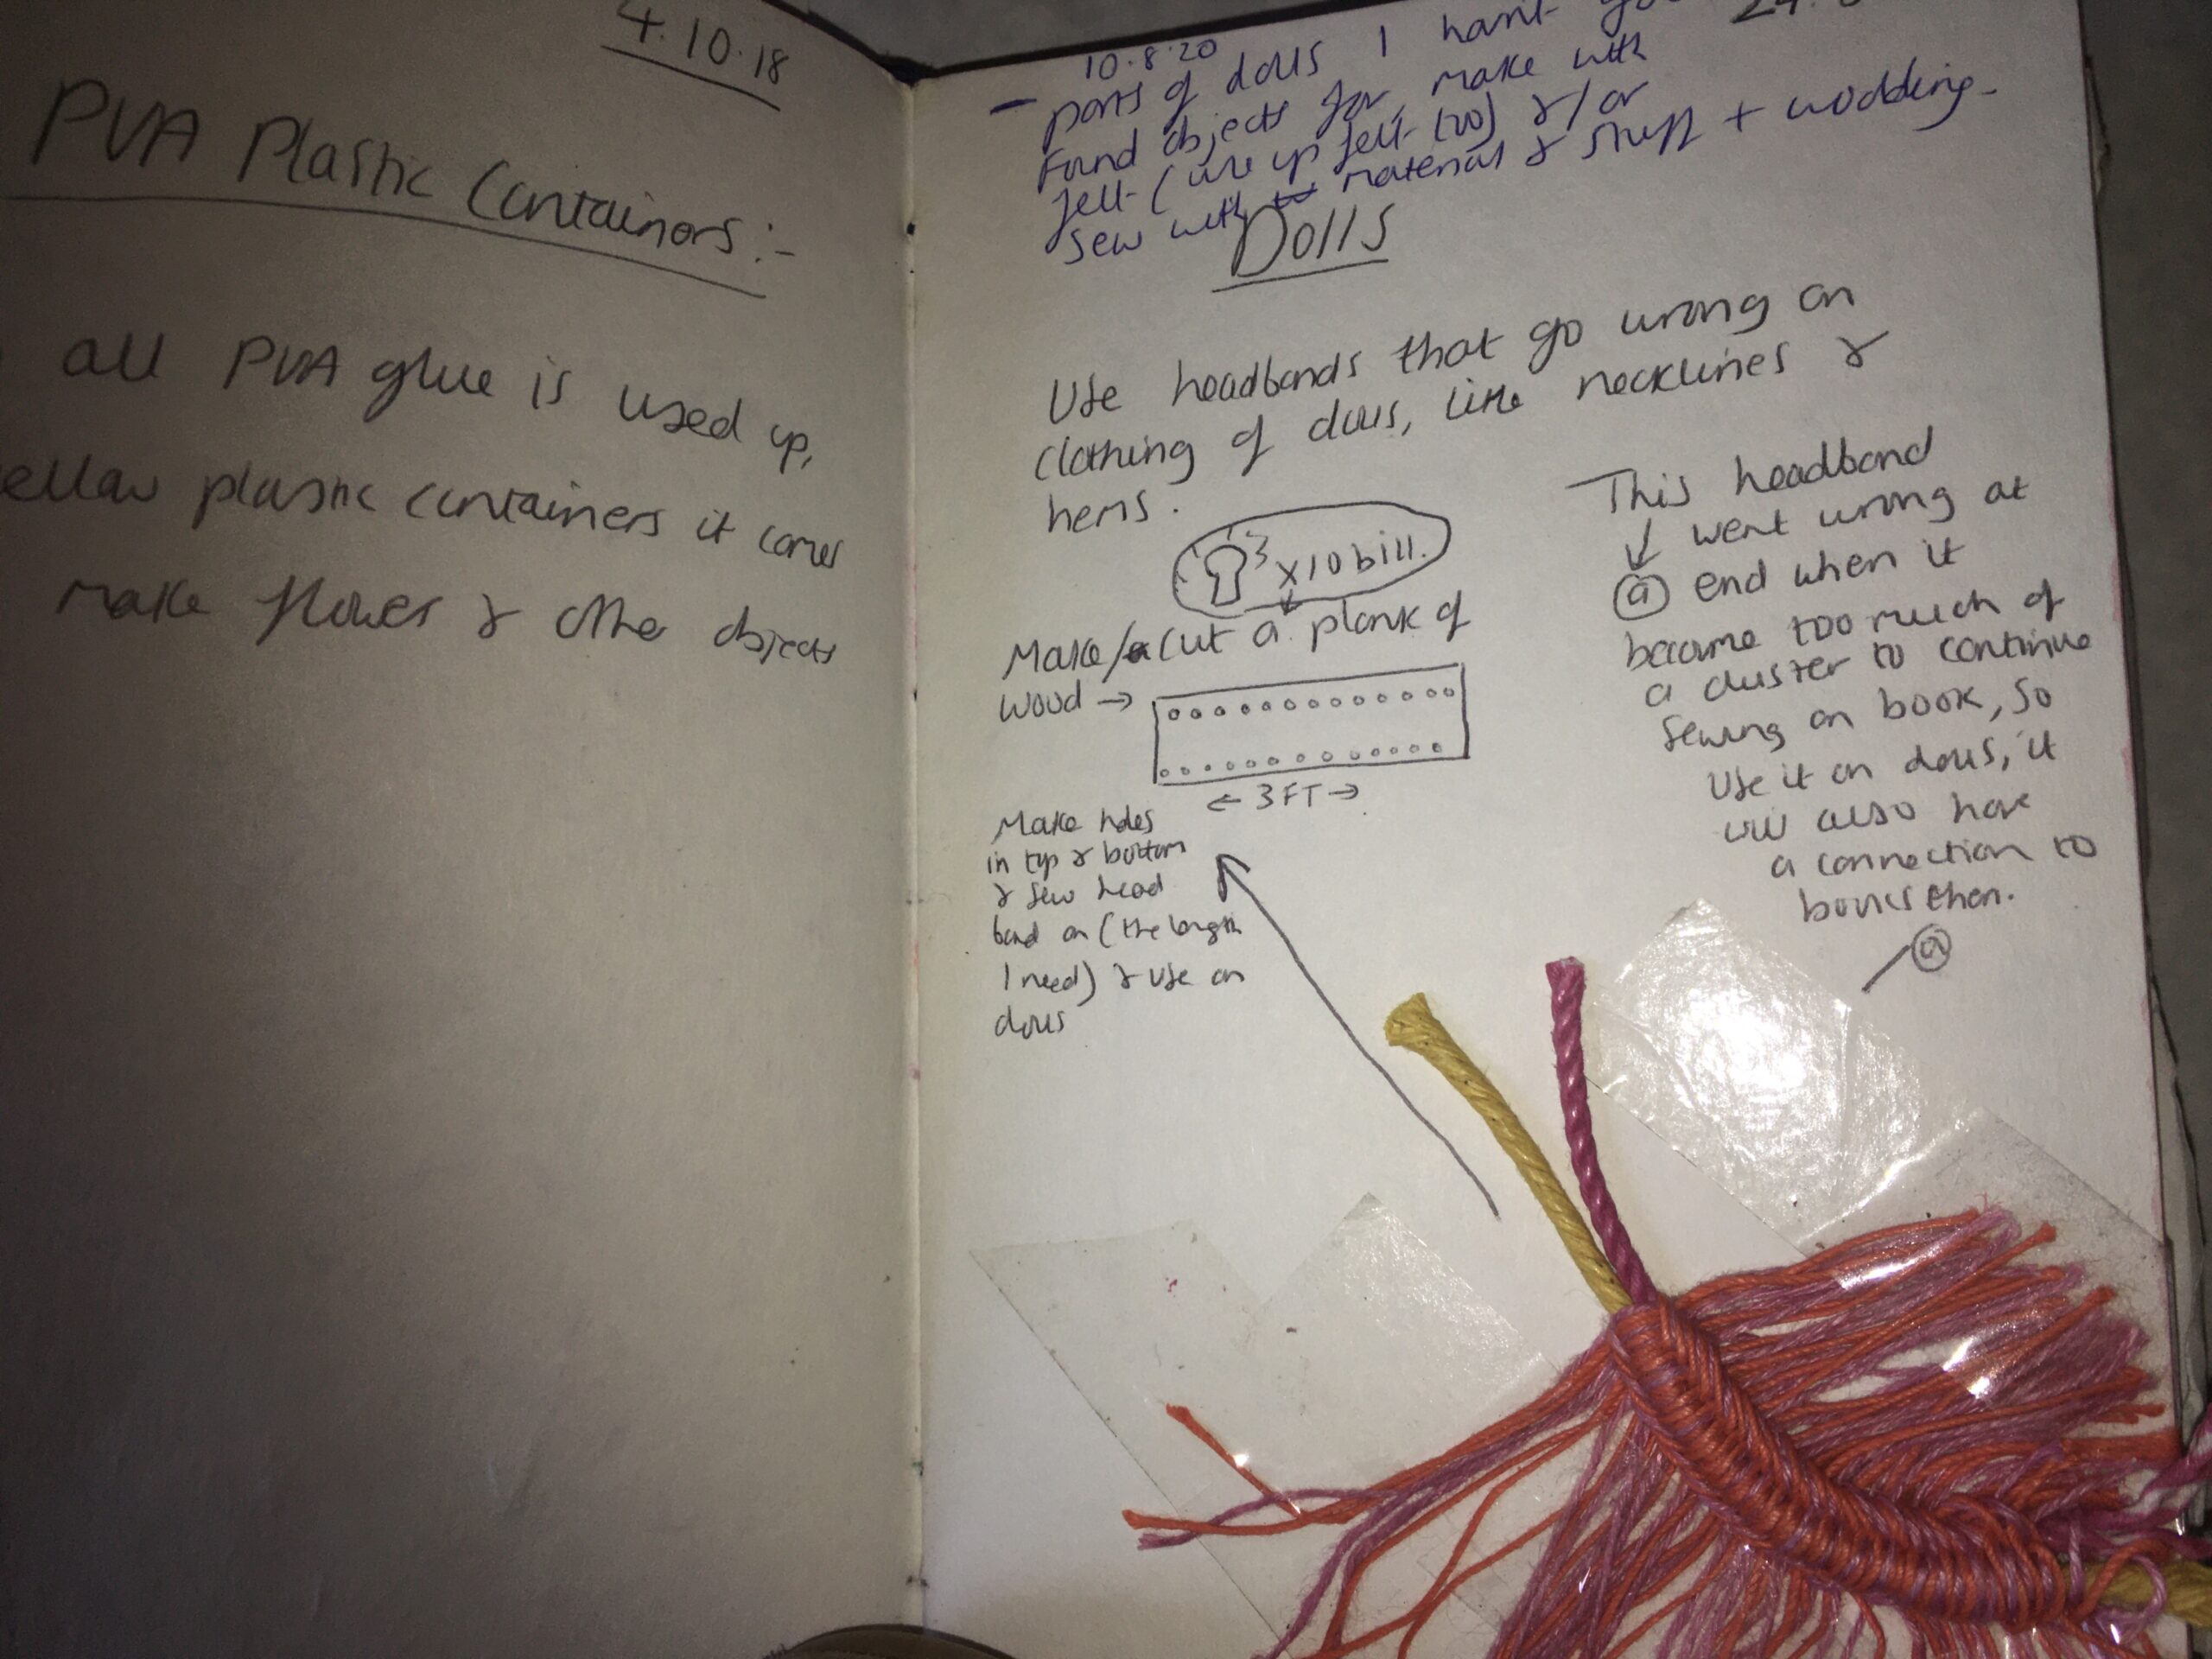 4.10.18
PVA Plastic Containors:-
all PVA glue is used up,
ellow plastic containers it comes
make flower & other objects
10.8.20
24.
- parts of dolls I havnt
Found objects for, make with
felt (use up felt too) &/or
sew with material & stuff + wodding.
Dolls
Use headbands that go wrong on
clothing of dolls, like necklines &
hems.
x10 bill.
Make/cut a plank of
wood →
← 3FT →
Make holes
in top & bottom
& sew head
band on (the length
I need) & use on
dolls
This headband
↓ went wrong at
a end when it
became too much of
a cluster to continue
sewing on book, so
Use it on dolls, it
will also have
a connection to
books then.
a